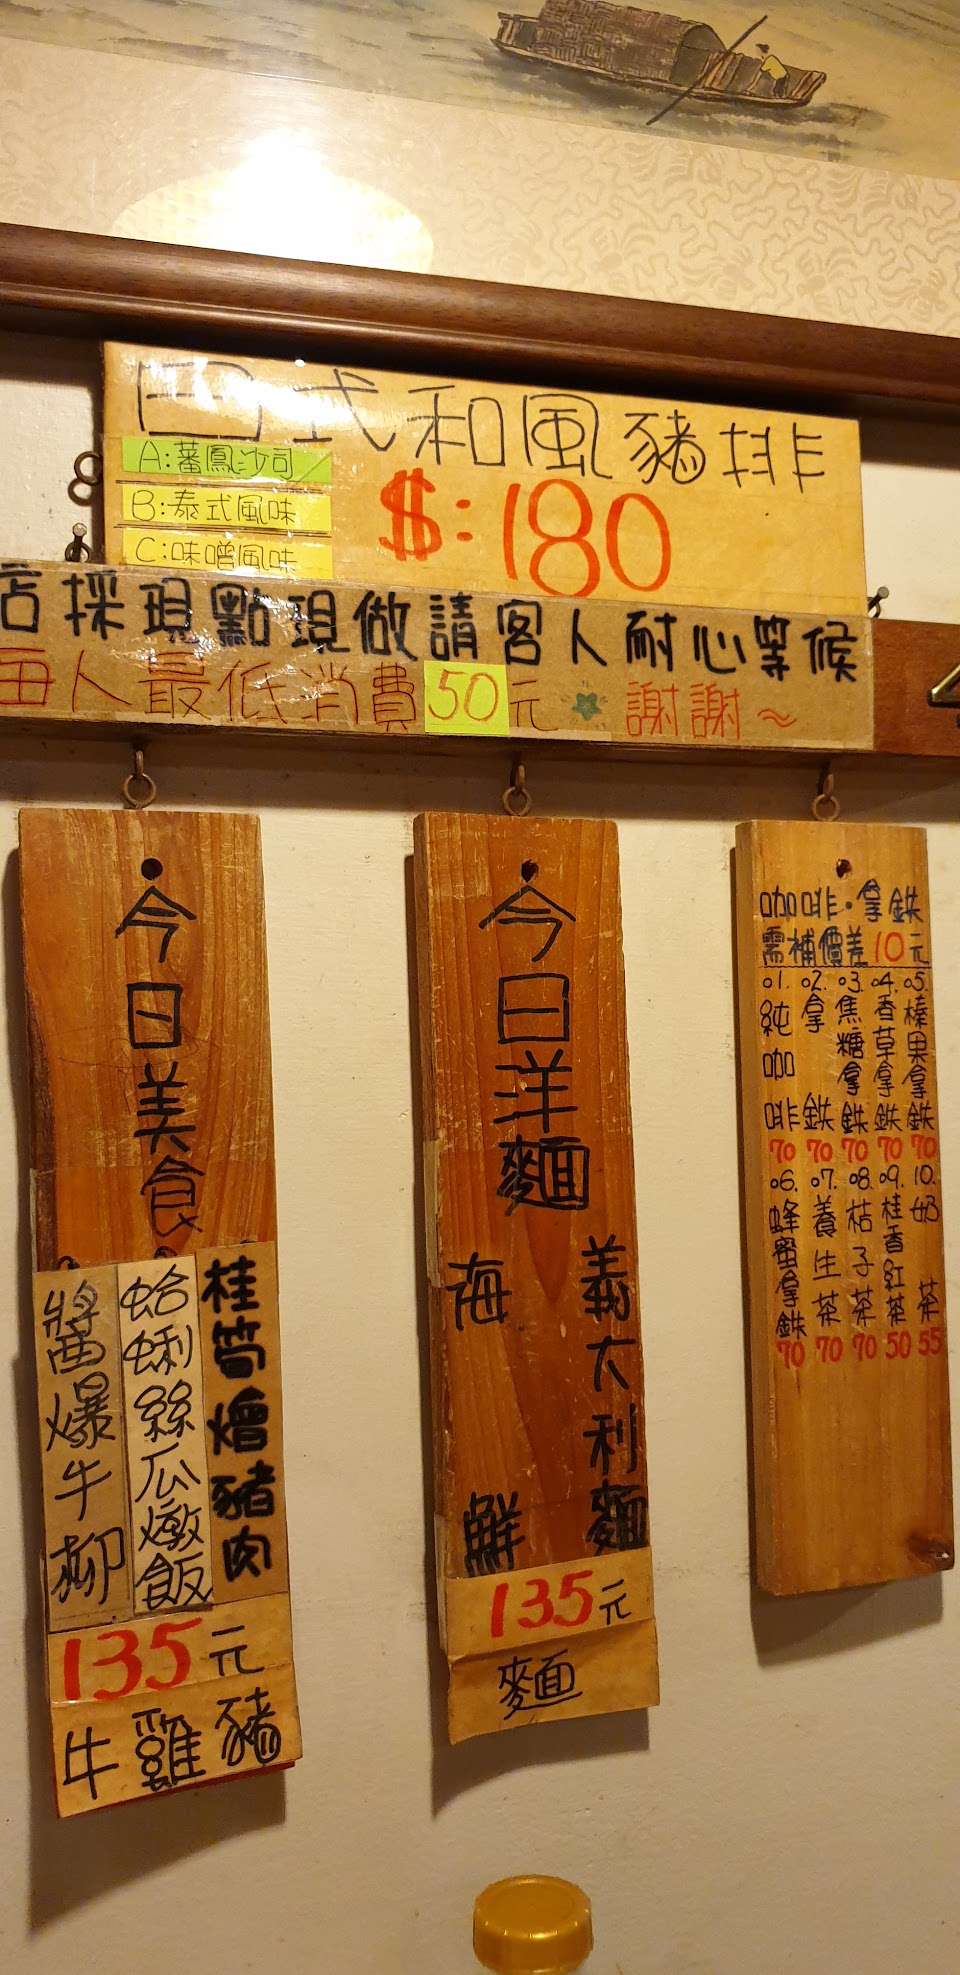 巴式和風豬排
A:蕃鳳沙司
B:泰式風味
C:味噌風味
$:180
店採現點現做請客人耐心等候
每人最低消費50元 謝謝~
今日美食
桂筍燴豬肉
蛤蜊絲瓜燉飯
醬爆牛柳
135元
牛雞豬
今日洋麵
義大利麵
海鮮
135元
麵
咖啡·拿鉄
需補價差10元
01.純咖啡 70
02.拿鉄 70
03.焦糖拿鉄 70
04.香草拿鉄 70
05.榛果拿鉄 70
06.蜂蜜拿鉄 70
07.養生茶 70
08.桔子茶 70
09.桂香紅茶 50
10.奶茶 55